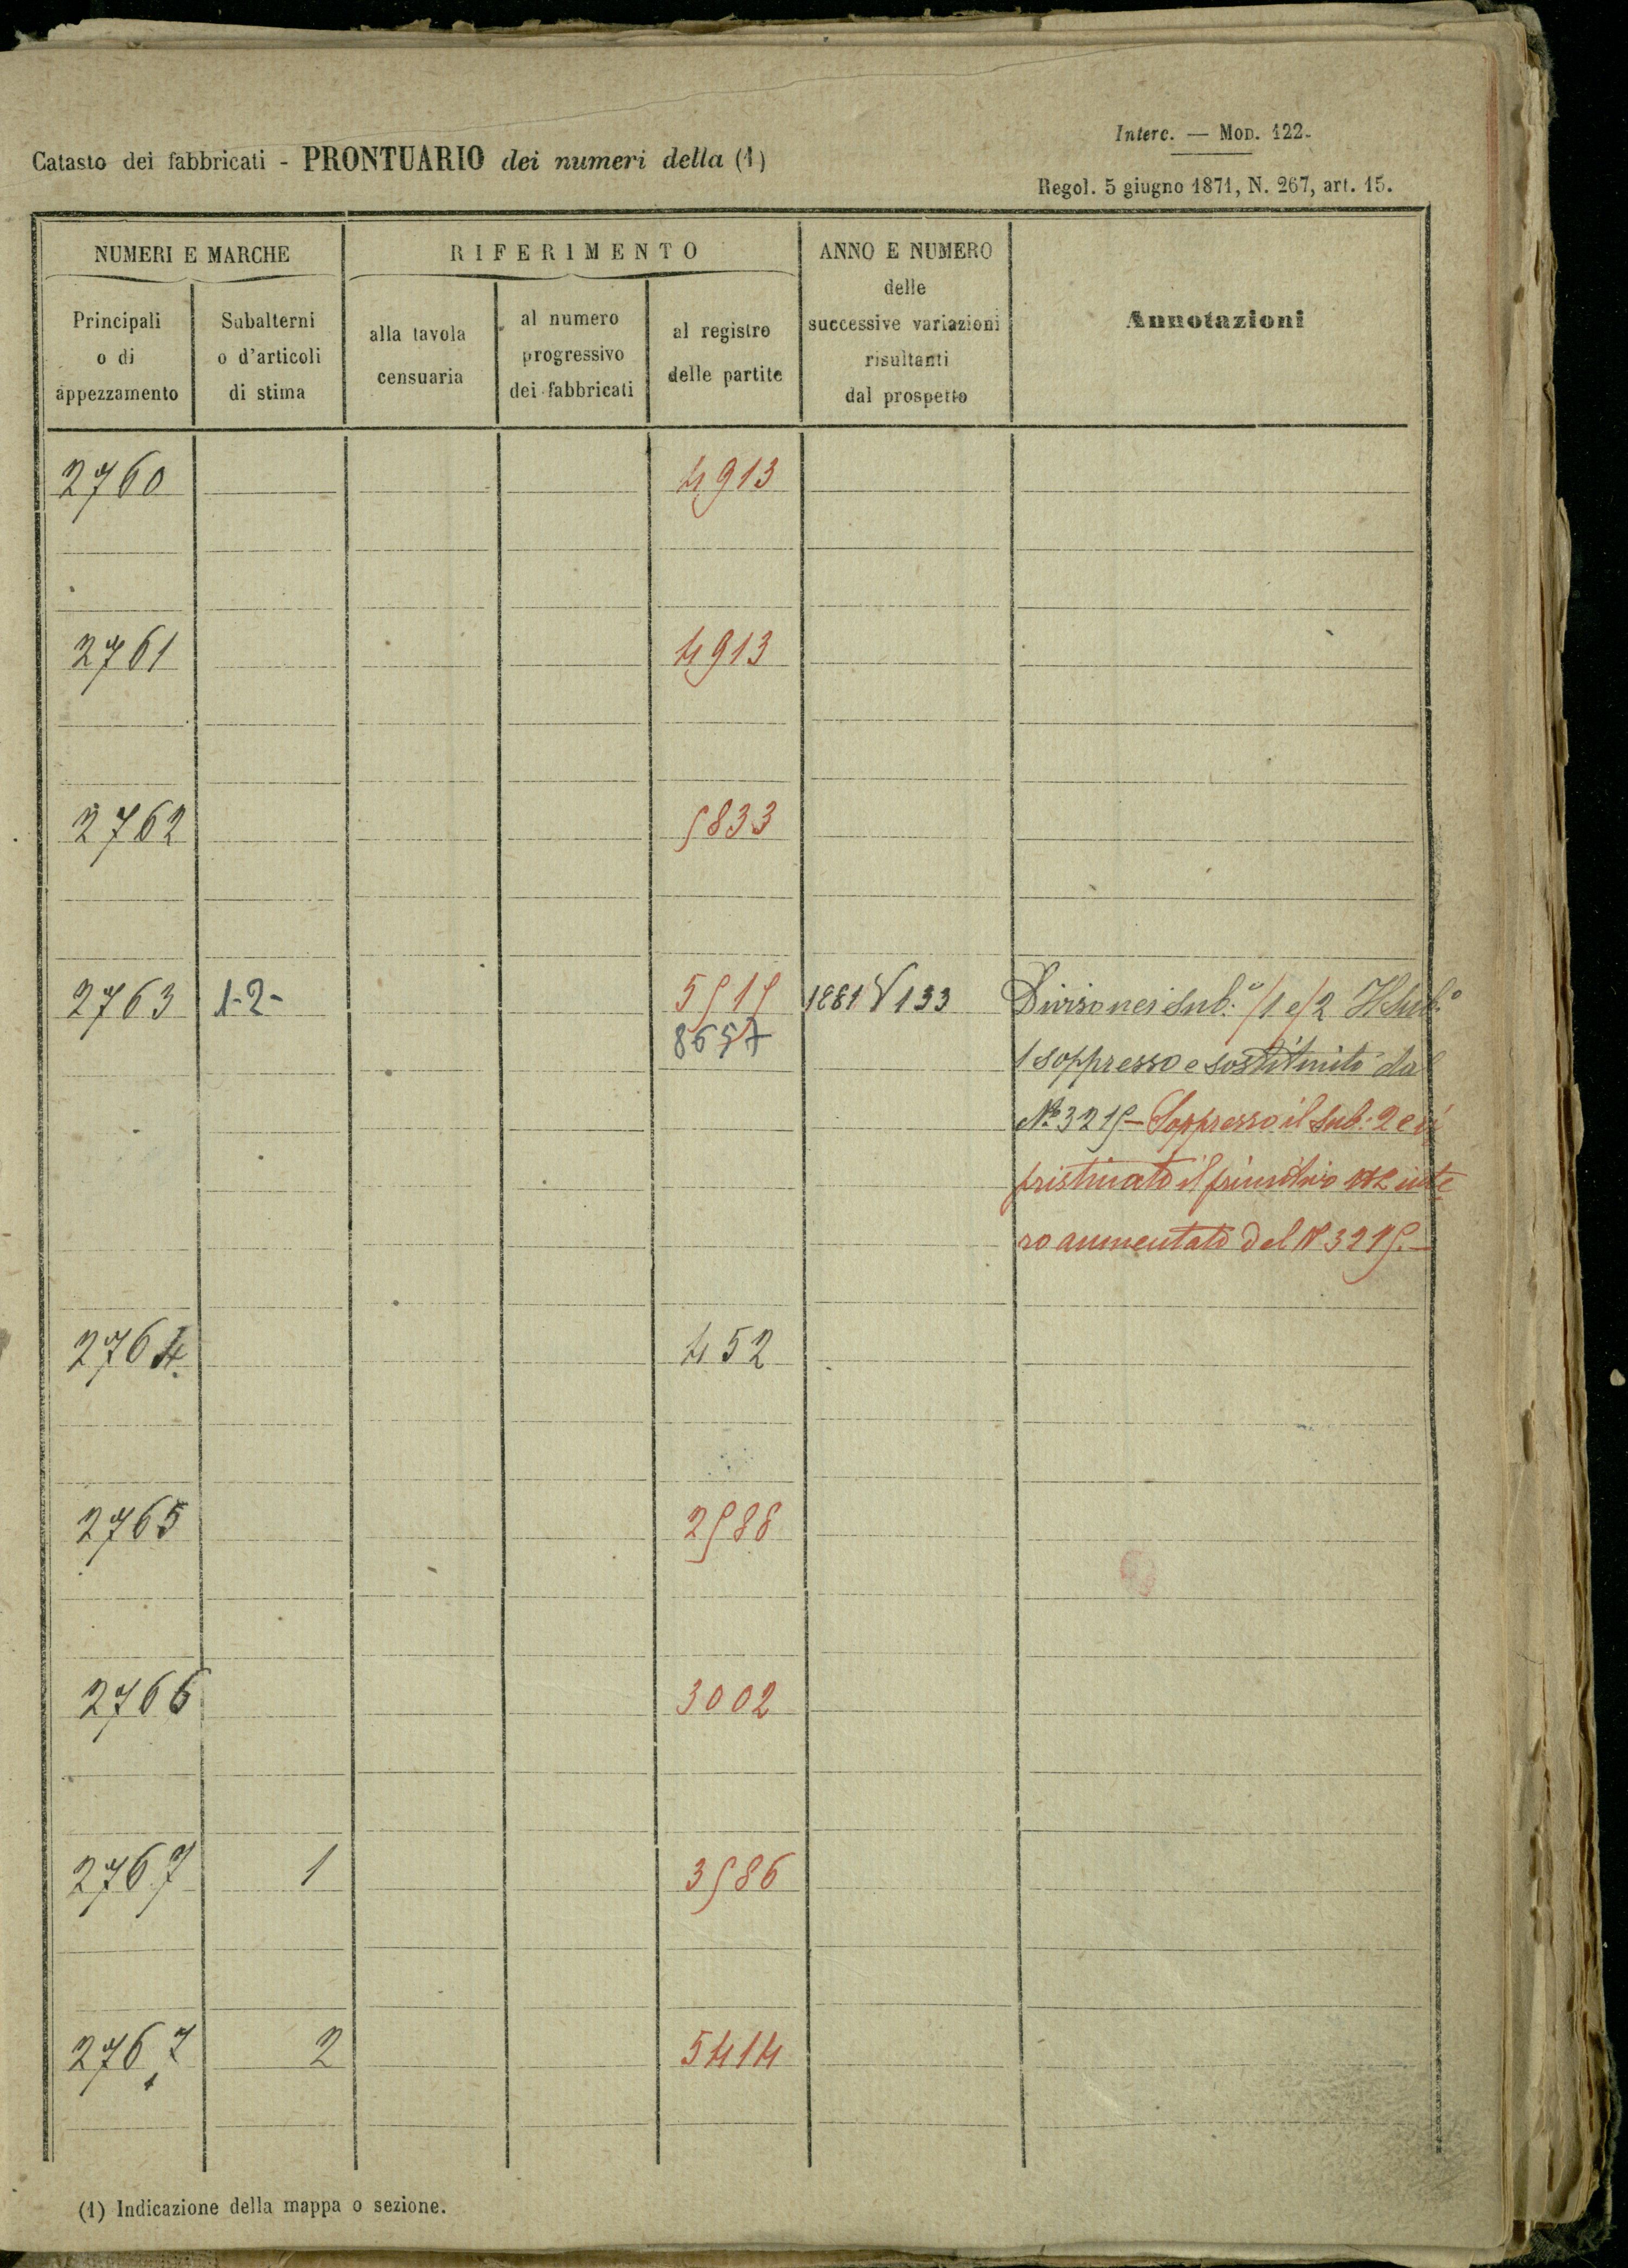 Interc. — Mod. 122.
Catasto dei fabbricati - PRONTUARIO dei numeri della (1)
Regol. 5 giugno 1871, N. 267, art. 15.
NUMERI E MARCHE RIFERIMENTO ANNO E NUMERO delle successive variazioni risultanti dal prospetto Annotazioni
Principali o di appezzamento Subalterni o d'articoli di stima alla tavola censuaria al numero progressivo dei fabbricati al registro delle partite
2760 4913
2761 4913
2762 5833
2763 1-2- 5515 1881 V 133 Divisone si sub.° /1 e /2 Il sub.°
8657
1 soppresso e sostituito dal
N° 3215 - Soppresso il sub. 2 e ri
pristinato il primitivo inte
ro aumentato del N 3215. -
2764 452
2765 2588
2766 3002
2767 1 3586
2767 2 5414
(1) Indicazione della mappa o sezione.